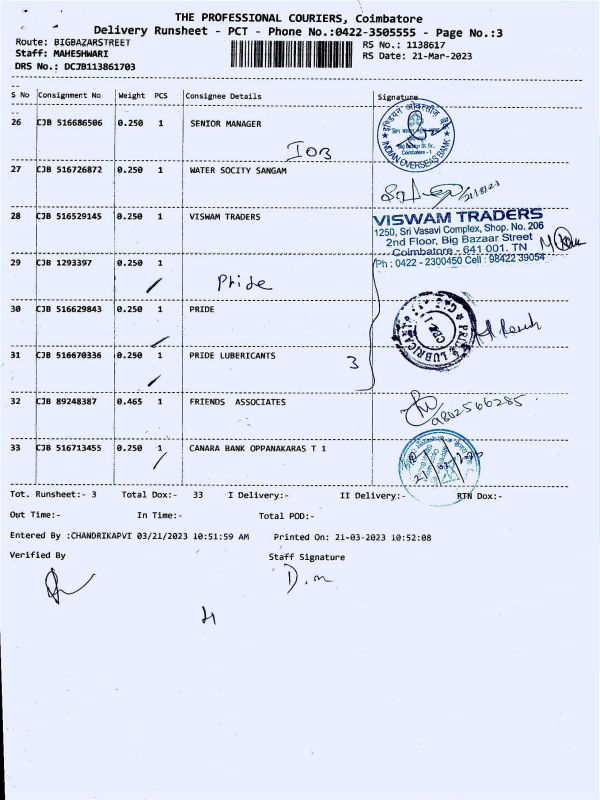 THE PROFESSIONAL COURIERS, Coimbatore
Delivery Runsheet - PCT - Phone No.:0422-3505555 - Page No.:3
Route: BIGBAZARSTREET
RS No.: 1138617
Staff: MAHESHWARI
RS Date: 21-Mar-2023
DRS No.: DCJB113861703
S No Consignment No Weight PCS Consignee Details Signature
26 CJB 516686506 0.250 1 SENIOR MANAGER
IOB
INDIAN OVERSEAS BANK
27 CJB 516726872 0.250 1 WATER SOCITY SANGAM
28 CJB 516529145 0.250 1 VISWAM TRADERS
VISWAM TRADERS
1250, Sri Vasavi Complex, Shop. No. 206
2nd Floor, Big Bazaar Street
Coimbatore - 641 001. TN
Ph : 0422 - 2300450 Cell : 98422 39054
29 CJB 1293397 0.250 1
Pride
30 CJB 516629843 0.250 1 PRIDE
31 CJB 516670336 0.250 1 PRIDE LUBERICANTS
3
32 CJB 89248387 0.465 1 FRIENDS ASSOCIATES
9802566285
33 CJB 516713455 0.250 1 CANARA BANK OPPANAKARAS T 1
Tot. Runsheet:- 3 Total Dox:- 33 I Delivery:- II Delivery:- RTN Dox:-
Out Time:- In Time:- Total POD:-
Entered By :CHANDRIKAPVI 03/21/2023 10:51:59 AM Printed On: 21-03-2023 10:52:08
Verified By Staff Signature